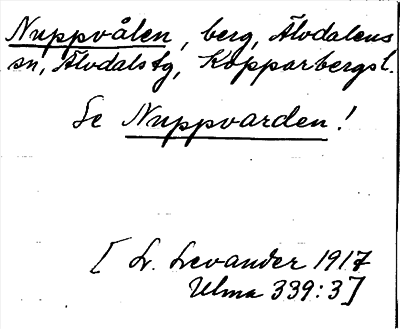 Nuppvålen, berg, Älvdalens
sn, Älvdalstg, Kopparbergsl.
Se Nuppvarden!
[L. Levander 1917
Ulma 339:3]